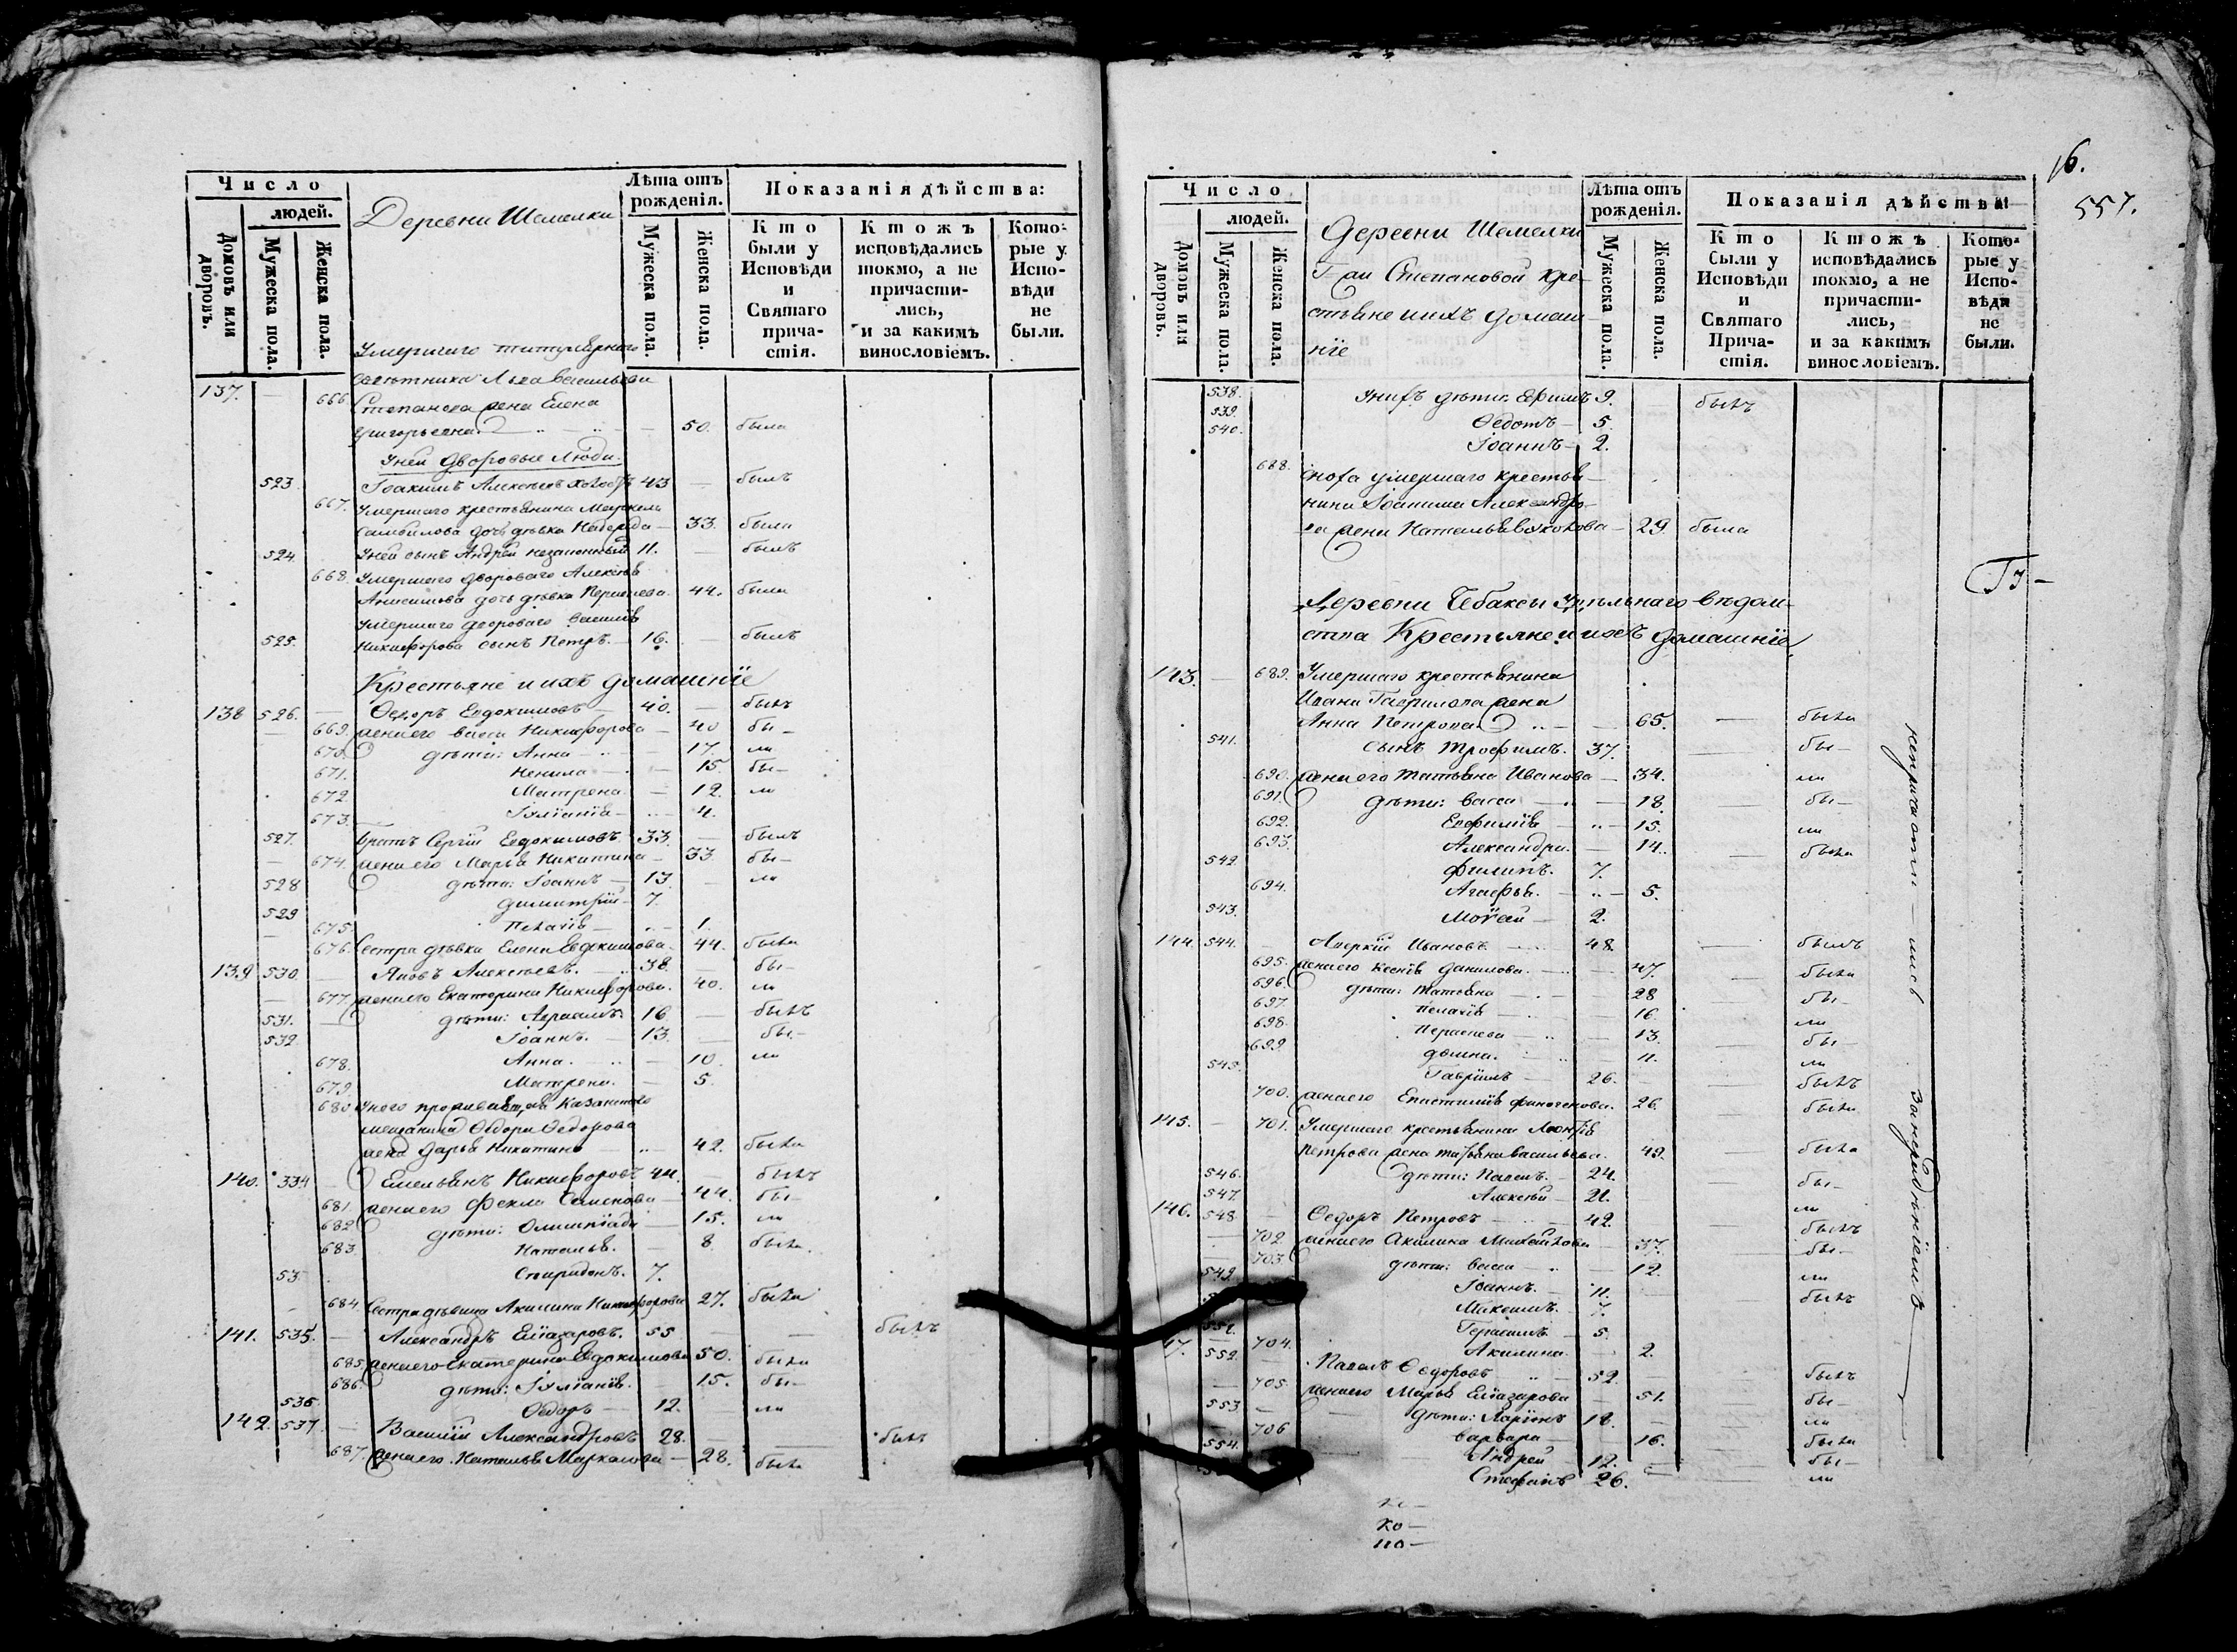 Число
людей.
Домовъ или дворовъ.
Мужеска пола.
Женска пола.
Деревни Шемелки
Лѣта отъ рожденія.
Мужеска пола.
Женска пола.
Показанія дѣйства:
Кто были у Исповѣди и Святаго причастія.
Ктожъ исповѣдались токмо, а не причастились, и за какимъ винословіемъ.
Которые у Исповѣди не были.
Умершаго титулярнаго
137. — советника Льва Васильева
666. Степанова жена Елена
Григорьевна — 50. была
У ней дворовые Люди.
523. Іоакимъ Алексѣевъ холостъ 43 — былъ
667. Умершаго крестьянина Маркела
Самойлова дочь дѣвка Надежда — 33. была
524. У ней сынъ Андрей незаконный 11. — былъ
668. Умершаго двороваго Алексѣя
Анисимова дочь дѣвка 44. была
Умершаго двороваго Василія
525. Никифорова сынъ Петръ. — 16. — былъ
Крестьяне и ихъ домашніе
138 526. — Ѳедоръ Евдокимовъ — 40. — былъ
669. жена его Васса Никифорова — 40 бы —
670. дѣти: Анна — 17. ли
671. Ненила — 15. бы —
672. Матрена — 12. ли
673. Іуліанія — 4.
527. братъ Сергій Евдокимовъ. 33. — былъ
674. жена его Марья Никитина — 33 бы —
528 дѣти: Іоаннъ — 13. — ли
529 Димитрій — 7.
675. Пелагія — 1.
676. Сестра дѣвка Елена Евдокимова. 44. была
139 530 — Яковъ Алексѣевъ. — 38. — бы —
677. жена его Екатерина Никифорова. 40. ли
531. — дѣти: Герасимъ. 16. — былъ
532. Іоаннъ. — 13. — бы —
678. Анна. — 10. ли
679. Матрена. — 5.
680. У него проживающая Казанскаго
мещанина Ѳедора Ѳедорова
жена Дарья Никитина — 42. была
140. 534 — Емельянъ Никифоровъ 44. — былъ
681. жена его Фекла Семенова — 44. бы —
682 дѣти: Олимпіада — 15. ли
683. Наталья. — 8. была
53 Спиридонъ. 7.
684. Сестра дѣвица Акилина Никифорова 27. была
141. 535. — Александръ Еліазаровъ. 55 — — былъ
685. жена его Екатерина Евдокимова 50. была
686. дѣти: Іуліанія. — 15. бы —
536 Ѳедоръ — 12. ли
142. 537 — Василій Александровъ 28. — — былъ
687. жена его Наталья Маркелова — 28. была
16.
557.
Число
людей.
Домовъ или дворовъ.
Мужеска пола.
Женска пола.
Деревни Шемелки
Г-жи Степановой кре-
стьяне и ихъ домаш-
ніе
Лѣта отъ рожденія.
Мужеска пола.
Женска пола.
Показанія дѣйства:
Кто были у Исповѣди и Святаго Причастія.
Ктожъ исповѣдались токмо, а не причастились, и за какимъ винословіемъ.
Которые у Исповѣди не были.
538. У нихъ дѣти: Ефимъ 9. былъ
539. Ѳедотъ — 5.
540. Іоаннъ — 2.
688. Сноха умершаго крестья —
нина Іоакима Александро-
ва жена Наталья 29 была
Деревни Чебаксы Удѣльнаго вѣдом-
ства Крестьяне и ихъ домашніе
143. — 689. Умершаго крестьянина
Ивана Гаврилова жена
Анна Петрова — 65. — была
541. сынъ Трофимъ. 37. — бы —
690. жена его Татьяна Иванова — 34. ли
691. дѣти: Васса — 18. — бы —
692. Евфимія — 15. ли
693. Александра. — 14. — была
542. Филипъ. 7.
694. Агафья. — 5.
543. Моѵсей — 2.
не причаст ились за нерадѣніемъ
144. 544. — Аверкій Ивановъ. — 48. — былъ
695. жена его Ксенія Данилова. — 47. — была
696. дѣти: Татьяна — 28 — бы —
697. Пелагія — 16. ли
698. 13. — бы —
699. Домна. — 11. ли
545. Гавріилъ — 26. — былъ
700. жена его Епистимія 26. — была
145. — 701. Умершаго крестьянина Леонтія
Петрова жена Татьяна Васильева. 49. — была
546. дѣти: Павелъ. — 24. — бы —
547. Алексѣй — 21. ли
146. 548 — Ѳедоръ Петровъ — 42. — былъ
702 жена его Акилина Михайлова — 37. — бы —
703. дѣти: Васса — 12. ли
549. Іоаннъ. — 11. — былъ
Максимъ. — 7.
551. Герасимъ — 5.
704. Акилина. — 2.
47. 552. — Павелъ Ѳедоровъ — 52. — былъ
705. жена его Марья Еліазарова — 51. бы —
553 — дѣти: Ларіонъ 18. — ли
706 Варвара — 16. — была
554. Андрей — 12. — бы —
Стефанъ 26. ли
ко —
по —